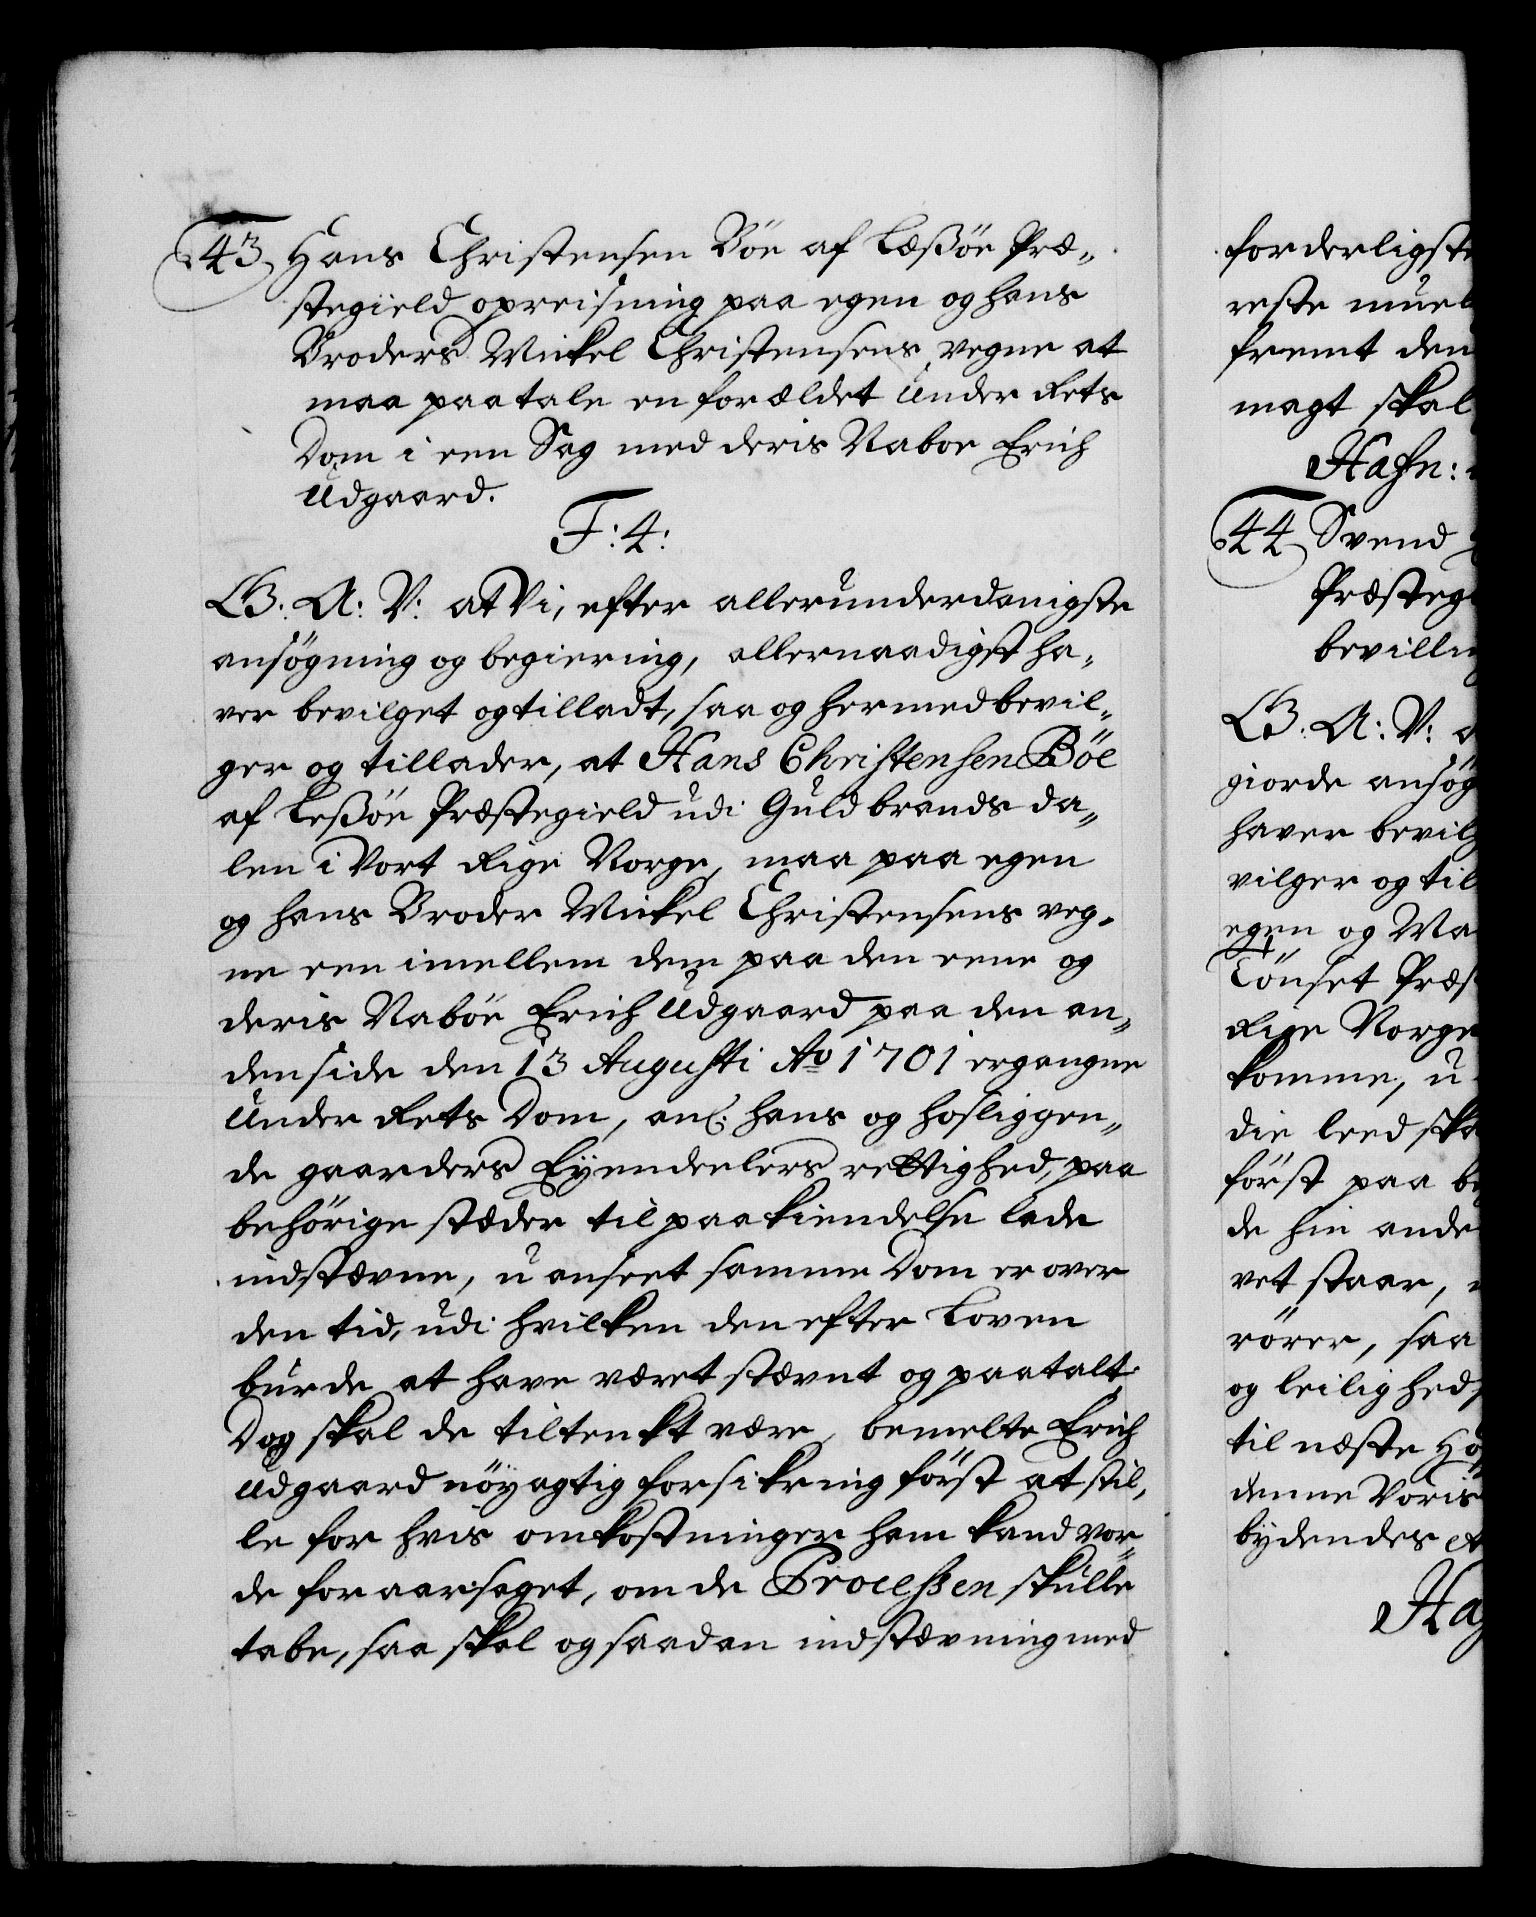 43 Hans Christensen Böe af Leßöe Præ„
stegield opreisning paa egen og hans
Broders Mickel Christensens vegne at
maa paatale en forældet Under Rets
Dom i een Sag med deris Naboe Erich
Udgaard.
F: 4:
G. A: V: at Vi, efter allerunderdanigste
ansögning og begiering, allernaadigst ha„
ver bevilget og tilladt, saa og hermed bevil„
ger og tillader, at Hans Christensen Böe
af Leßöe Præstegield udi Guldbrands da„
len i Vort Rige Norge, maa paa egen
og hans Broder Mickel Christensens veg„
ne een imellem dem paa den eene og
deris Naböe Erich Udgaard paa den an„
den side den 13 Augusti Ao 1701 ergangne
Under Rets Dom, anl: hans og hosliggen„
de gaarders Eyendeelers rettighed, paa
behörige stæder til paakiendelse lade
indstævne, uanseet samme Dom er over
den tid, udi hvilken den efter Loven
burde at have været stævnt og paatalt.
Dog skal de tiltenkt være, bemelte Erich
Udgaard nöyagtig forsikring först at stil„
le for hvis omkostninger ham kand vor„
de foraarsaget, om de Processen skulle
tabe, saa skal og saadan indstævning med
forderligste
reste muel
fremt den
magt skal
Hafn:
44 Svend
Præsteg
bevilling
G. A: V: a
giorde ansög
haver bevilg
vilger og til
egen og Ma
Tönset Præs
Rige Norge
komme, u
die leed ska
först paa be
de hin ande
vet staar,
rörer, saa
og leilighed
til næste Hö
denne Voris
bydendes
Haf